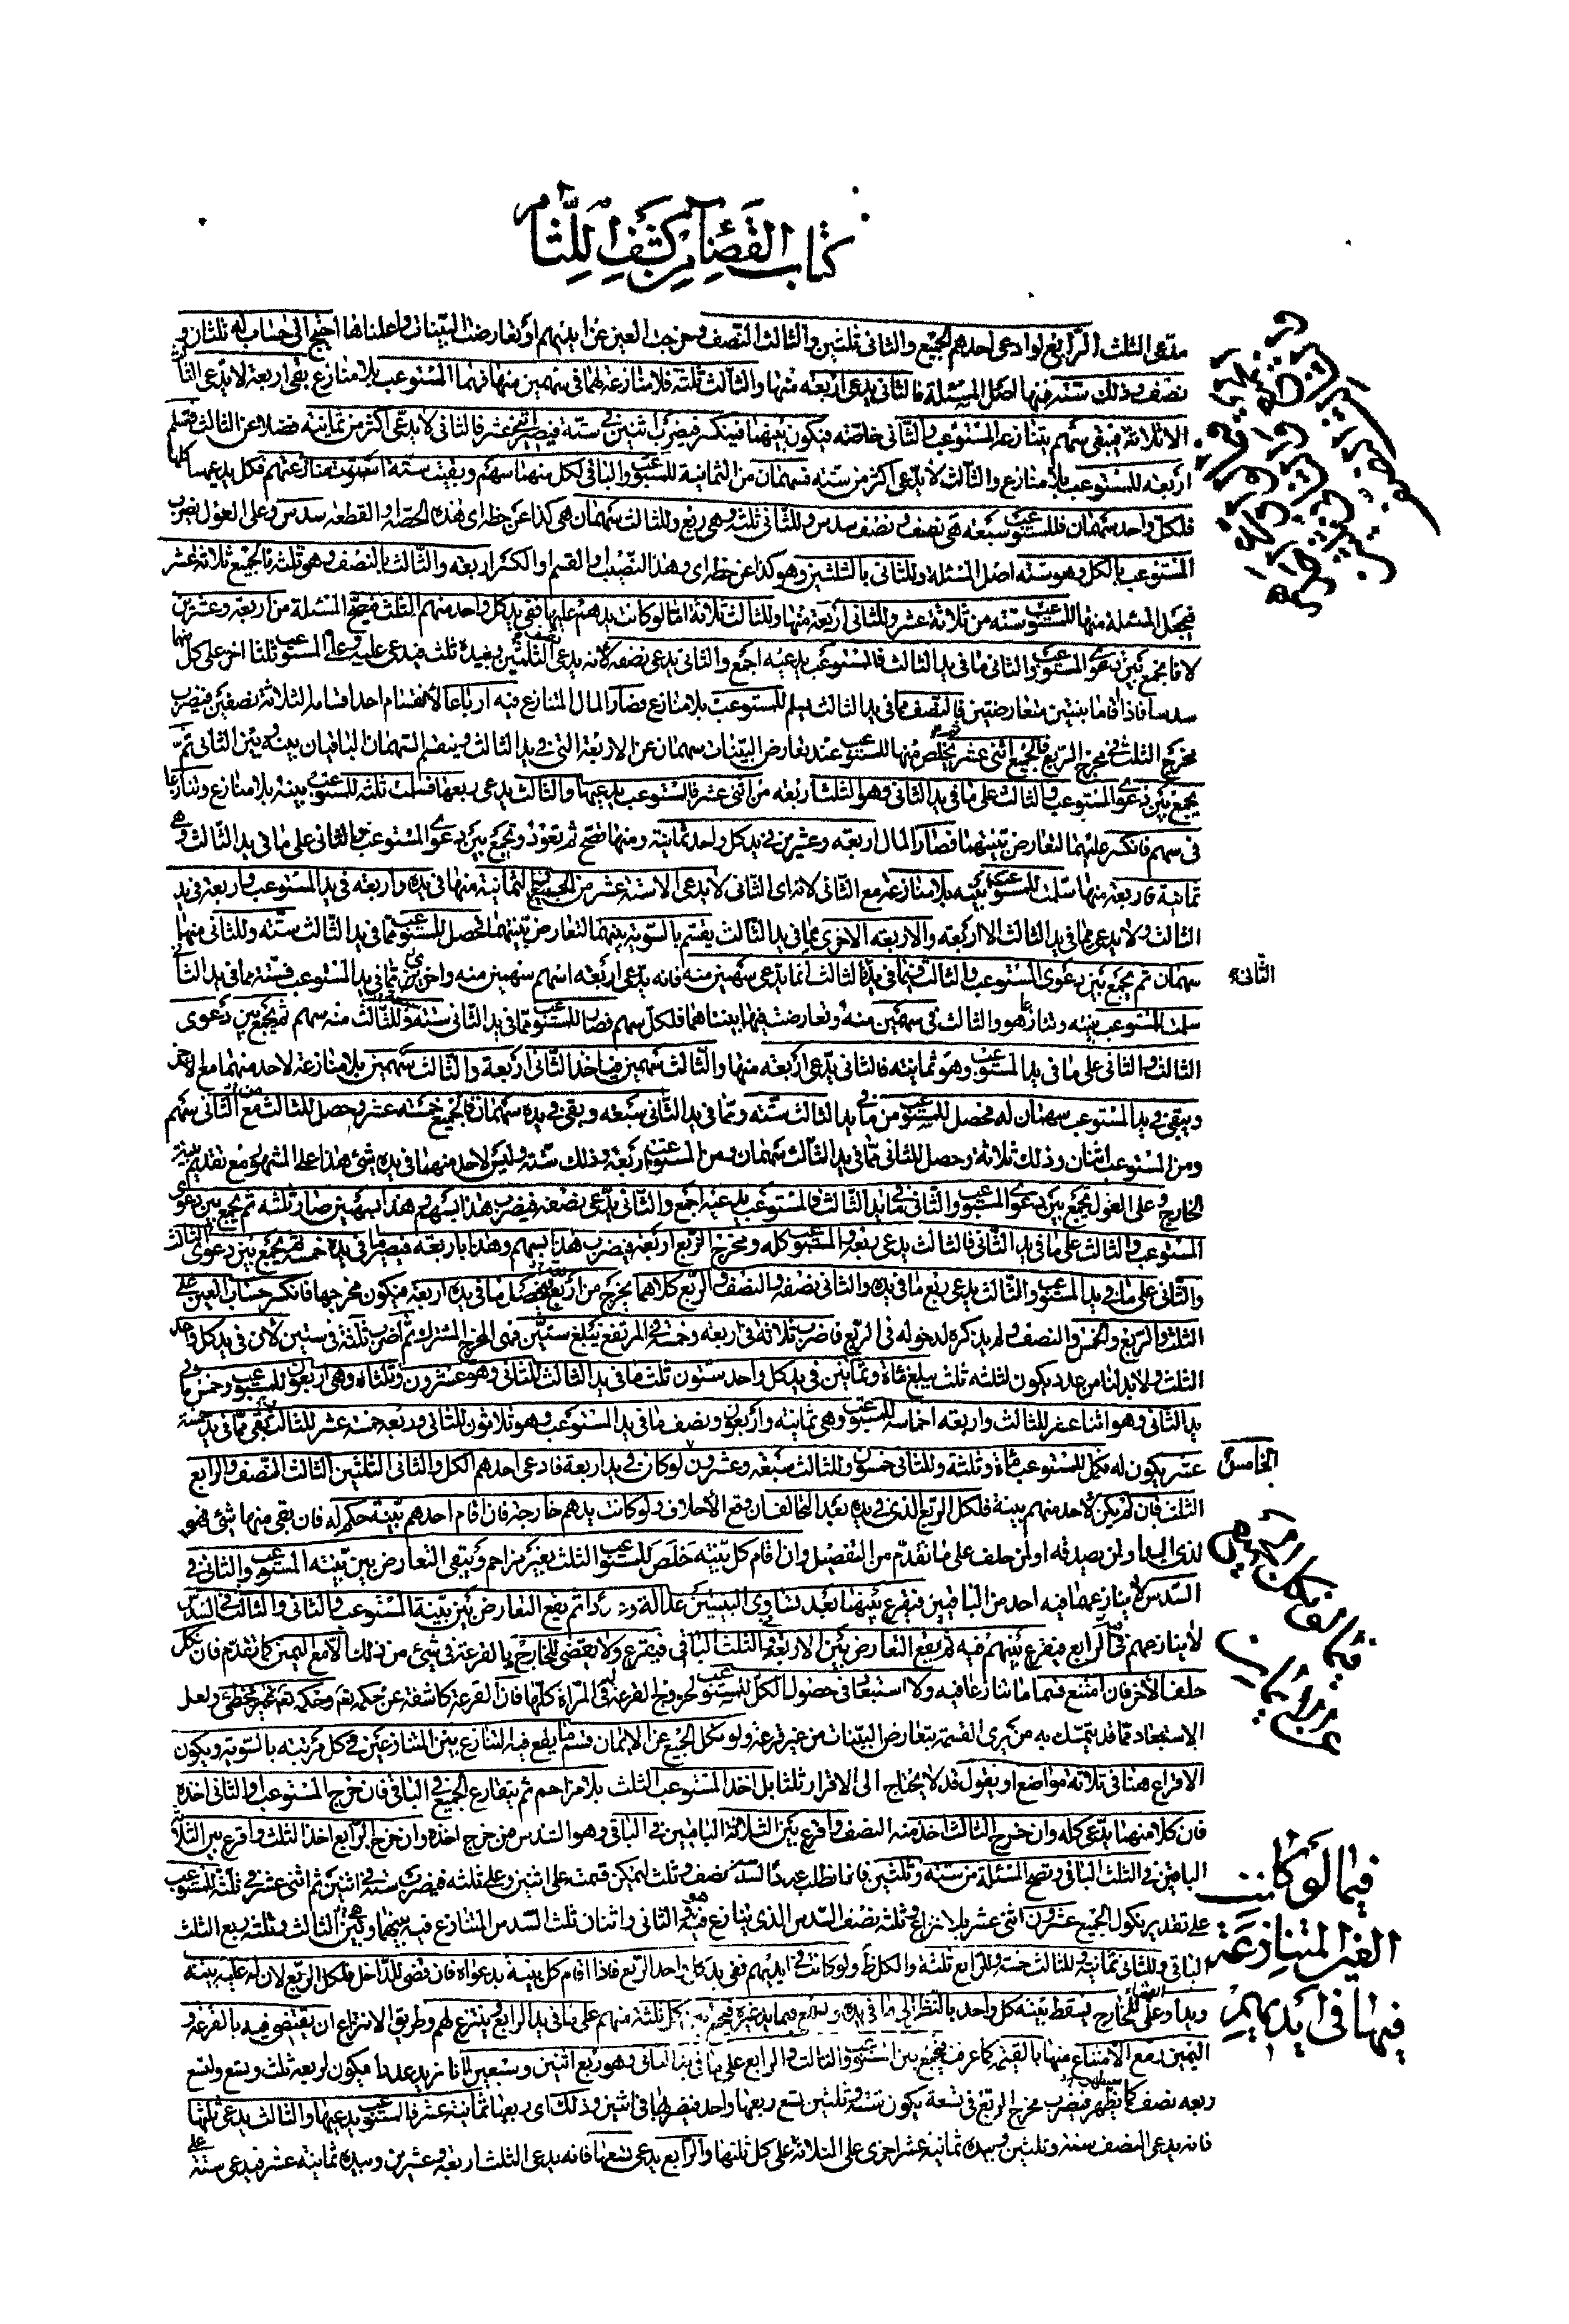 كتاب القضاء من كشف اللثام
مدعى الثلث الرابع لو ادعى احدهم الجميع والثانى ثلثين والثالث النصف وخرجت العين عن ايديهم او تعارضت البينات واعلناها احتج الى حساب له ثلثان و
نصف وذلك ستة فنها اصل المسئلة فالثانى يدعى اربعة منها والثالث ثلثة فلا منازعة لهما فى سهمين منها فهما المستوعب بلا منازع بقى اربعة لا يدعى الثالث
الا ثلاثة فيبقى سهم يتنازعه المستوعب والثانى خاصة فيكون بينهما فينكسر فيضرب اثنين فى ستة فيصير اثنى عشر فالثانى لا يدعى اكثر من ثمانية فضلا عن الثالث فتسلم
اربعة للمستوعب بلا منازع والثالث لا يدعى اكثر من ستة فسهمان من الثمانية للمستوعب والباقى لكل منهما سهم وبقيت ستة استوت منازعتهم فكل يدعيها كلها
فلكل واحد سهمان فللمستوعب سبعة هى نصف ونصف سدس وللثانى ثلثة وهى ربع وللثالث سهمان هى كذا عن خطه اى هذه الحصة او القطعة سدس وعلى العول يضرب
المستوعب بالكل وهو ستة اصل المسئلة وللثانى بالثلثين وهو كذا عن خطه اى وهذا النصيب او القسم او الكسر اربعة والثالث بالنصف وهو ثلثة فالجميع ثلاثة عشر
فيجعل المسئلة منها للمستوعب ستة من ثلاثة عشر وللثانى اربعة منها وللثالث ثلاثة اما لو كانت يدهم عليها ففى يد كل واحد منهم الثلث فيصح المسئلة من اربعة وعشرين
لانا نجمع بين دعوى المستوعب والثانى ما فى يد الثالث فالمستوعب يدعيه اجمع والثانى يدعى نصفه لانه يدعى الثلثين وبيده ثلث فيدعى عليه وعلى المستوعب ثلثا اخر على كل منهما
سدسا فاذا اقاما بينتين متعارضتين فالنصف مما فى يد الثالث يسلم للمستوعب بلا منازع فصار المال المتنازع فيه ارباعا لانقسام احد اقسامه الثلاثة نصفين فيضرب
مخرج الثلث فى مخرج الربع فالجميع اثنى عشر يخلص منها للمستوعب عند تعارض البينات سهمان عن الاربعة التى فى يد الثالث وينقسم السهمان الباقيان بينه وبين الثانى ثم
يجمع بين دعوى المستوعب والثالث على ما فى يد الثانى وهو الثلث اربعة من اثنى عشر فالمستوعب يدعيها والثالث يدعى ربعها فسلمت ثلثة للمستوعب ببينة بلا منازع وتنازعا
فى سهم فانكسر عليهما لتعارض بينتهما فصار المال اربعة وعشرين فى يد كل واحد ثمانية ومنها تصح ثم تعود وتجمع بين دعوى المستوعب والثانى على ما فى يد الثالث وهى
ثمانية فاربعة منها سلمت للمستوعب ببينة بلا منازعة مع الثانى لانه اى الثانى لا يدعى الا ستة عشر من الجميع ثمانية منها فى يده واربعة فى يد المستوعب واربعة فى يد
الثالث ولا يدعى مما فى يد الثالث الا اربعة والاربعة الاخرى مما فى يد الثالث يقسم بالسوية بينهما لتعارض بينتهما فحصل للمستوعب مما فى يد الثالث ستة وللثانى منها
سهمان ثم يجمع بين دعوى المستوعب والثالث فيما فى يد الثانى والثالث انما يدعى سهمين منه فانه يدعى اربعة اسهم سهمين منه واخرين مما فى يد المستوعب فستة مما فى يد الثانى
سلمت المستوعب ببينة وتنازعا هو والثالث فى سهمين منه وتعارضت فيهما بينتاهما فلكل سهم فصار للمستوعب مما فى يد الثانى سبعة وللثالث منه سهم ثم يجمع بين دعوى
الثالث والثانى على ما فى يد المستوعب وهو ثمانية فالثانى يدعى اربعة منها والثالث سهمين فياخذ الثانى اربعة والثالث سهمين بلا منازعة لاحد منهما مع الاخر
ويبقى فى يد المستوعب سهمان له فحصل للمستوعب من ما فى يد الثالث ستة ومما فى يد الثانى سبعة وبقى فى يده سهمان فالجميع خمسة عشر وحصل للثالث من الثانى سهم
ومن المستوعب اثنان وذلك ثلاثة وحصل للثانى مما فى يد الثالث سهمان ومن المستوعب اربعة وذلك ستة وليس لاحد منهما فى يده شئ هذا على المشهور مع تقديم بينة
الخارج وعلى العول يجمع بين دعوى المستوعب والثانى فى ما بيد الثالث فالمستوعب يدعيه اجمع والثانى يدعى نصفه فيضرب هذا بسهم وهذا بسهمين صار ثلثة ثم تجمع بين دعوى
المستوعب والثالث على ما فى يد الثانى فالثالث يدعى ربعه والمستوعب كله ومخرج الربع اربعة فيضرب هذا بسهم وهذا باربعة فيصير ما فى يده خمسة ثم يجمع بين دعوى الثالث
والثانى على ما فى يد المستوعب والثالث يدعى ربع ما فى يده والثانى نصفه والنصف والربع كلاهما يخرج من اربعة فيحصل ما فى يده اربعة فيكون مخرجها فانكسر حساب العين على
الثلث والربع والخمس والنصف ولم يذكره لدخوله فى الربع فاضرب ثلاثة فى اربعة وخمسة فى المرتفع يبلغ ستين فهى المخرج المشترك ثم اضرب ثلاثة فى ستين لان فى يد كل واحد
الثلث ولا بد لنا من عدد يكون لثلثه ثلث يبلغ مأة وثمانين فى يد كل واحد ستون ثلث ما فى يد الثالث للثانى وهو عشرون وثلثاه وهى اربعون للمستوعب وخمس ما فى
يد الثانى وهو اثنا عشر للثالث واربعة اخماسه للمستوعب وهى ثمانية واربعون ونصف ما فى يد المستوعب وهو ثلاثون للثانى وربعه خمسة عشر للثالث بقى مما فى يده خمسة
عشر يكون له فكمل للمستوعب مأة وثلثة وللثانى خمسون وللثالث سبعة وعشرون لو كان فى يد اربعة فادعى احدهم الكل والثانى الثلثين الثالث النصف والرابع
الثلث فان لم يكن لاحد منهم بينة فلكل الربع الذى فى يده بعد التحالف ان وقع الاحلاف ولو كانت يدهم خارجة فان اقام احدهم بينة حكم له فان بقى منها شئ فهو
لذى اليد او لمن يصدقه او لمن حلف على ما تقدم من التفصيل وان اقام كل بينة خلص للمستوعب الثلث بغير مزاحم ويبقى التعارض بين بينة المستوعب والثانى فى
السدس لا ينازعهما فيه احد من الباقيين فيقرع بينهما بعد تساوى البينتين عدالة وعددا ثم يقع التعارض بين بينة المستوعب والثانى والثالث فى السدس
لا ينازعهم فيه الرابع فيقرع بينهم فيه ثم يقع التعارض بين الاربعة فى الثلث الباقى فيقرع ولا يقضى للخارج بالقرعة فى شئ من ذلك الا مع اليمين كما تقدم فان نكل
حلف الاخر فان امتنع فيما ما تنازعا فيه ولا استبعاد فى حصول الكل للمستوعب لخروج القرعة له فى المراة كلها فان القرعة كاشفة عن حكمه تعم وحكمه تعم غير مخطئ ولعل
الاستبعاد مما قد يتمسك به من يرى القسمة بتعارض البينات من غير قرعة ولو نكل الجميع عن الايمان قسم ما يقع فيه التنازع بين المتنازعين فى كل مرتبة بالسوية ويكون
الاقراع هنا فى ثلاثة مواضع او يقول قد لا يحتاج الى الاقرار ثلثا بل اخذ المستوعب الثلث بلا مزاحم ثم يتقارع الجميع فى الباقى فان خرج المستوعب او الثانى اخذه
فان كلا منهما يدعى كله وان خرج الثالث اخذ منه النصف واقرع بين الثلاثة الباقين فى الباقى وهو السدس من خرج اخذه وان خرج الرابع اخذ الثلث واقرع بين الثلاثة
الباقين فى الثلث الباقى وتصح المسئلة من ستة وثلثين فانا نطلب عددا لسدسه نصف وثلث
على تقدير نكول الجميع عشرون اثنى عشر بلا نزاع وثلثة نصف السدس الذى ينازع فيه هو والثانى واثنان ثلث السدس المتنازع فيه بينهما وبين الثالث وثلثة ربع الثلث
الباقى وللثانى ثمانية وللثالث خمسة وللرابع ثلثة والكل ظ ولو كانت فى ايديهم ففى يد كل واحد الربع فاذا اقام كل بينة بدعواه فان قضى للداخل فلكل الربع لان له عليه بينة
ويدا وعلى القضاء للخارج يسقط بينة كل واحد بالنظر الى ما فى يده وتسمع فيما يد غيره فيجمع بين كل ثلثة منهم على ما فى يد الرابع ينتزع لهم وطريق الانتزاع ان يقتضى فيه بالقرعة و
اليمين ومع الامتناع منها بالقسمة كما عرف فيجمع بين المستوعب والثالث والرابع على ما فى يد الثانى وهو ربع اثنين وسبعين لانا نريد عددا يكون لربعه ثلث وتسع ولتسع
ربعه نصف كما يظهر فيضرب مخرج الربع فى تسعة يكون ستة وثلثين تسع ربعها واحد فيضربها فى اثنين وذلك اى ربعها ثمانية عشر فالمستوعب يدعيها والثالث يدعى ثلثها
فانه يدعى النصف ستة وثلثين وبيده ثمانية عشر اخرى على الثلاثة على كل ثلثها والرابع يدعى تسعها فانه يدعى الثلث اربعة وعشرين وبيده ثمانية عشر فيدعى ستة على
الثانية
الخامس
فيما لو كانت
العين المتنازعة
فيها فى ايديهم